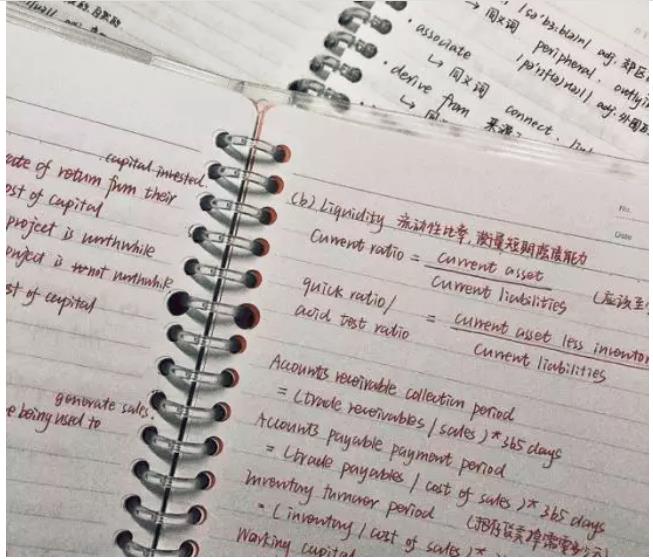 /sə'bɜːbə(n)/ adj. 郊区
→ 同义词 peripheral, outlyi
· associate
↳ 同义词 connect, lin
· derive from 来源
capital invested.
rate of return from their
ost of capital
project is worthwhile
project is not worthwhile
st of capital
generate sales.
e being used to
No.
Date
(b) Liquidity 流动性比率, 衡量短期偿债能力
Current ratio = current asset
current liabilities (应该至少
quick ratio/
acid test ratio = current asset less inventor
current liabilities
Accounts receivable collection period
= (trade receivables / sales) * 365 days
Accounts payable payment period
= (trade payables / cost of sales) * 365 days
Inventory turnover period
= (inventory / cost of sales) *
Working capital